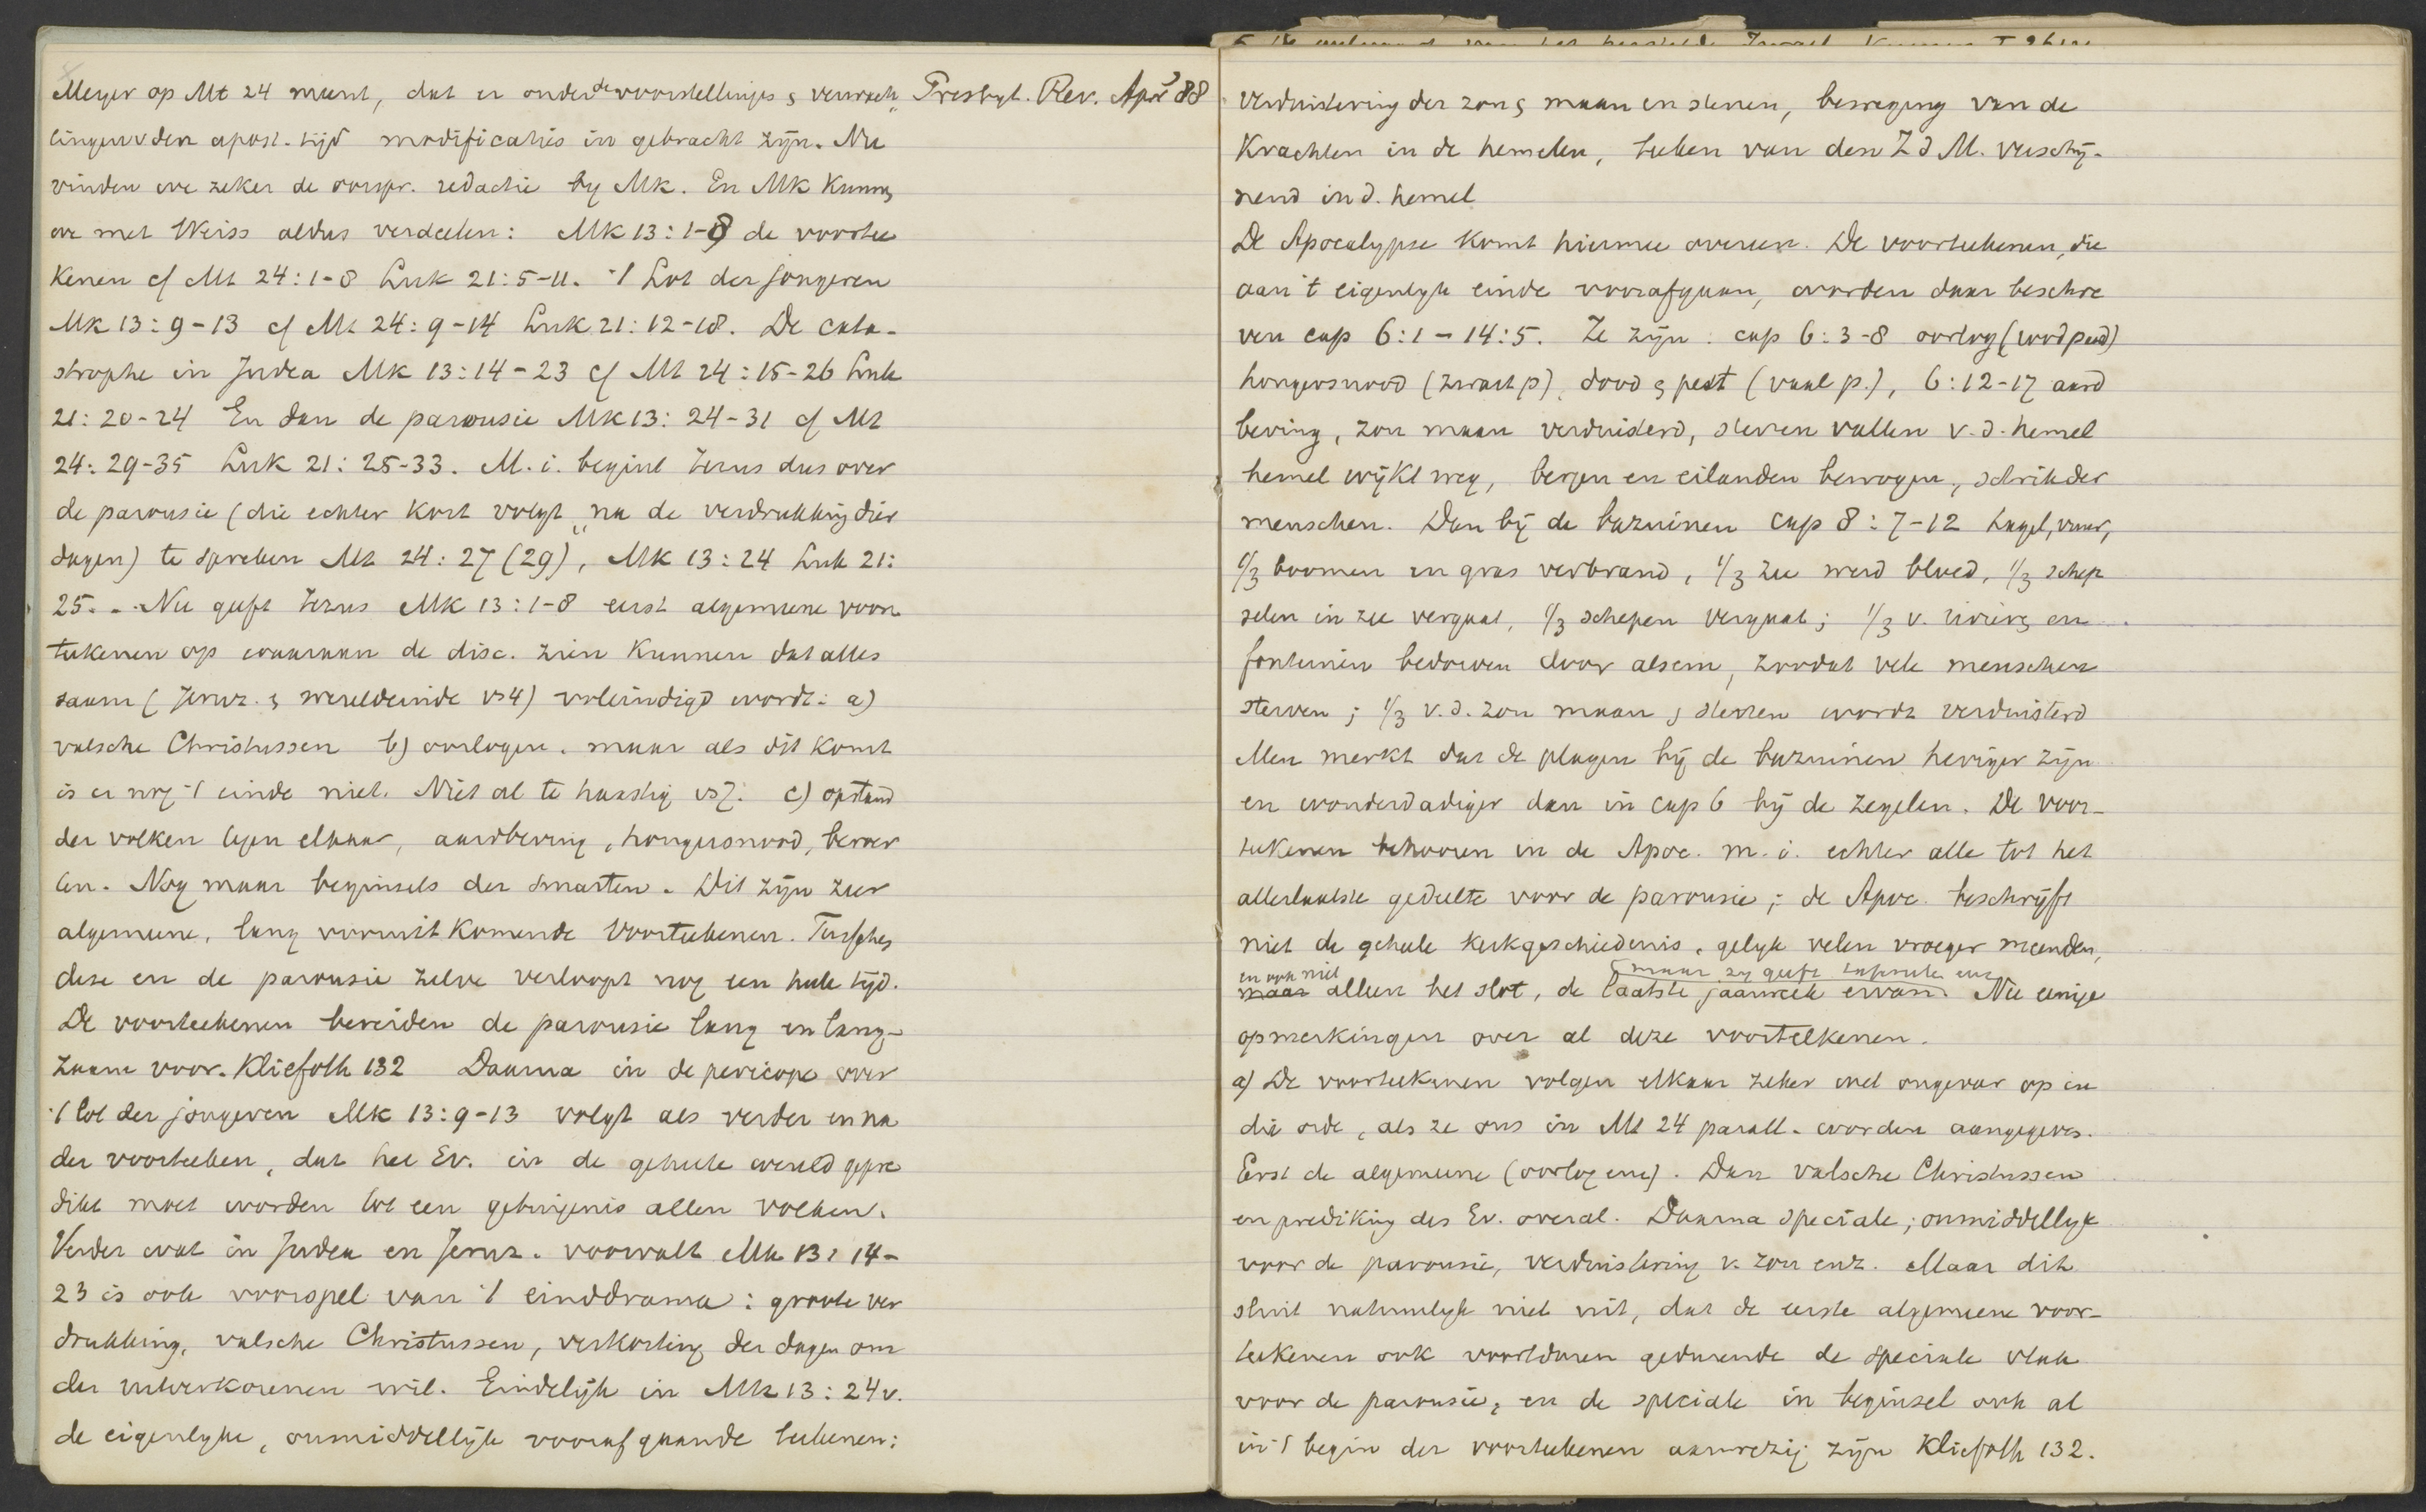 Meyer op Mt 24 meent, dat er onder de voorstellingen & verwach„ Presbyt. Rev. Apr 88
tingen v den apost. tijd modificaties in gebracht zijn. Nu
vinden we zeker de oorspr. redactie by Mk. En Mk kunnen
we met Weiss aldus verdeelen: Mk 13:1-8 de voortee
kenen cf Mt 24:1-8 Luk 21:5-11. 't Lot der jongeren
Mk 13:9-13 cf Mt 24:9-14 Luk 21:12-18. De cata-
strophe in Judea Mk 13:14-23 cf Mt 24:15-26 Luk
21:20-24 En dan de parousie Mk 13:24-31 cf Mt
24:29-35 Luk 21:25-33. M.i. begint Jezus dus over
de parousie (die echter kort volgt „na de verdrukking dier
dagen) te spreken Mt 24:27 (29), Mk 13:24 Luk 21:
25. - Nu geeft Jezus Mk 13:1-8 eerst algemeene voor
teekenen op waaraan de disc. zien kunnen dat alles
saam (Jeruz. & wereldeinde vs 4) voleindigd wordt: a)
valsche Christussen b) oorlogen. maar als dit komt
is er nog 't einde niet. Niet al te haastig vs 7. c) opstand
der volken tegen elkaar, aardbeving, hongersnood, beroer
ten. Nog maar beginsels der smarten. Dit zijn zeer
algemeene, lang vooruit komende voorteekenen. Tusschen
deze en de parousie zelve verloopt nog een heele tijd.
De voorteekenen bereiden de parousie lang en lang-
zaam voor. Kliefoth 132 Daarna in de pericope over
't lot der jongeren Mk 13:9-13 volgt als verder en na
der voorteeken, dat het Ev. in de geheele wereld gepre
dikt moet worden tot een getuigenis allen volken.
Verder wat in Judea en Jeruz. voorvalt Mk 13:14-
23 is ook voorspel van 't einddrama: groote ver
drukking, valsche Christussen, verkorting der dagen om
der uitverkorenen wil. Eindelijk in Mk 13:24v.
de eigenlyke, onmiddellijk voorafgaande teekenen:
verduistering der zon & maan en sterren, beweging van de
Krachten in de hemelen, teeken van den Z d M. verschij-
nend in d. hemel
De Apocalypse komt hiermee overeen. De voorteekenen, die
aan 't eigenlyk einde voorafgaan, worden daar beschre
ven cap 6:1-14:5. Ze zijn: cap 6:3-8 oorlog (rood paard)
hongersnood (zwart p), dood & pest (vaal p.), 6:12-17 aard
beving, zon maan verduisterd, sterren vallen v.d. hemel
hemel wijkt weg, bergen en eilanden bewogen, schrik der
menschen. Dan bij de bazuinen cap 8:7-12 hagel, vuur,
1/3 boomen en gras verbrand, 1/3 zee werd bloed, 1/3 schep
selen in zee vergaat, 1/3 schepen vergaat; 1/3 v. rivieren en
fonteinen bedorven door alsem, zoodat vele menschen
sterven; 1/3 v.d. zon maan & sterren wordt verduisterd
Men merkt dat de plagen bij de bazuinen heviger zijn
en wonderdadiger dan in cap 6 bij de zegelen. De voor-
teekenen behooren in de Apoc. m.i. echter alle tot het
allerlaatste gedeelte voor de parousie; de Apoc. beschrijft
niet de geheele kerkgeschiedenis, gelyk velen vroeger meenden,
en ook niet maar zy geeft
maar alleen het slot, de laatste jaarweek ervan. Nu eenige
opmerkingen over al deze voorteekenen.
a) De voorteekenen volgen elkaar zeker wel ongeveer op in
die orde, als ze ons in Mt 24 parall. worden aangegeven.
Eerst de algemeene (oorlog enz). Dan valsche Christussen
en prediking des Ev. overal. Daarna speciale, onmiddellyk
voor de parousie, verduistering v. zon enz. Maar dit
sluit natuurlyk niet uit, dat de eerste algemeene voor-
teekenen ook voortduren gedurende de speciale vlak
voor de parousie, en de speciale in beginsel ook al
in 't begin der voorteekenen aanwezig zijn Kliefoth 132.